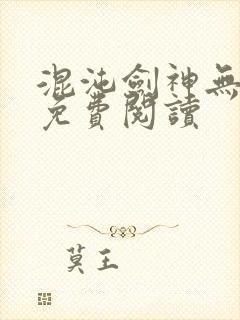 混沌劍神無
免費閱讀
莫王